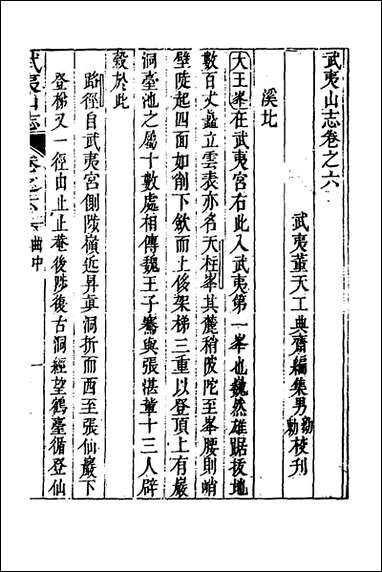 武夷山志卷之六
武夷董天工典齋編集男勷勷校刊
溪北
大王峯在武夷宮右此入武夷第一峯也巍然雄踞拔地
數百丈矗立雲表亦名天柱峯其麓稍陂陀至峯腰則峭
壁陡起四面如削下斂而上侈架梯三重以登頂上有巖
洞臺池之屬十數處相傳魏王子騫與張湛輩十三人辟
穀於此
路徑自武夷宮側陟嶺近昇真洞折而西至張仙巖下
登梯又一徑由止止菴後陟後古洞經望鶴臺循登仙
武夷山志 卷之六 一曲中 一